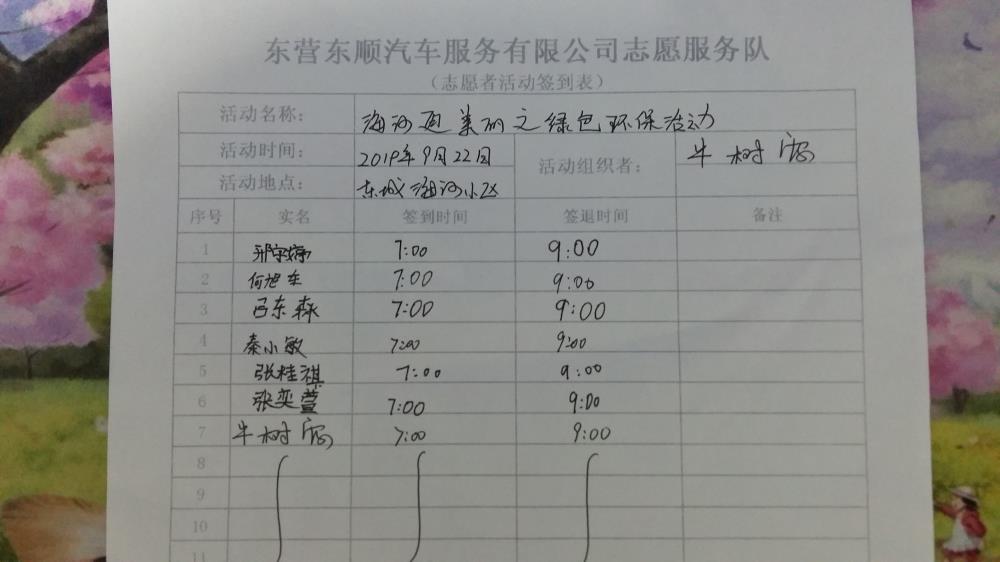 东营东顺汽车服务有限公司志愿服务队
(志愿者活动签到表)
活动名称: 海河更美丽之绿色环保活动
活动时间: 2019年9月22日 活动组织者: 牛树
活动地点: 东城海河小区
序号 实名 签到时间 签退时间 备注
1 7:00 9:00
2 何旭东 7:00 9:00
3 吕东森 7:00 9:00
4 秦小敏 7:00 9:00
5 张桂祺 7:00 9:00
6 梁奕萱 7:00 9:00
7 牛树 7:00 9:00
8
9
10
11